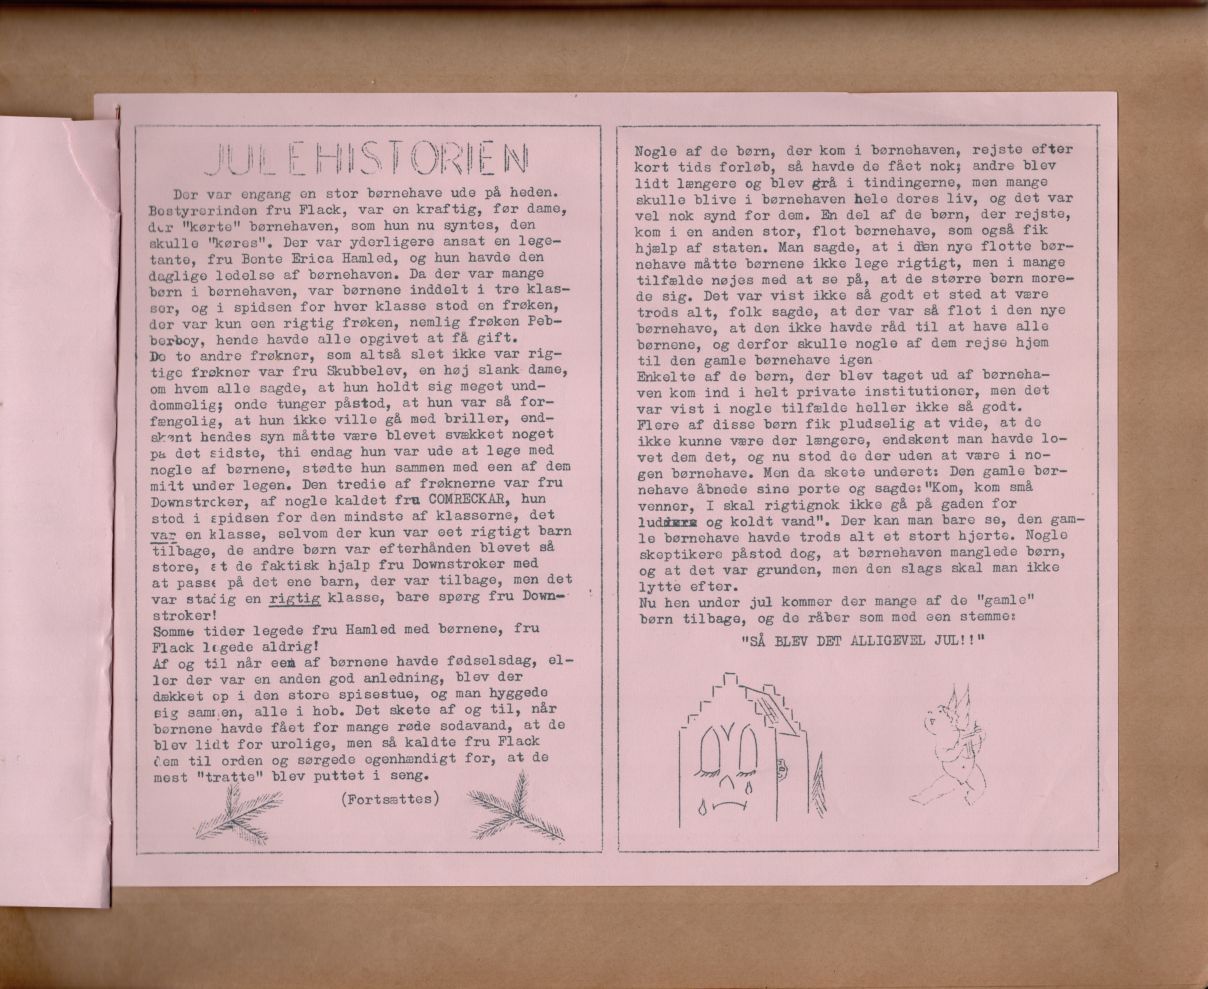 JULEHISTORIEN
Der var engang en stor børnehave ude på heden.
Bestyrerinden fru Flack, var en kraftig, før dame,
der "kørte" børnehaven, som hun nu syntes, den
skulle "køres". Der var yderligere ansat en lege-
tante, fru Bente Erica Hamled, og hun havde den
daglige ledelse af børnehaven. Da der var mange
børn i børnehaven, var børnene inddelt i tre klas-
ser, og i spidsen for hver klasse stod en frøken,
der var kun een rigtig frøken, nemlig frøken Peb-
berboy, hende havde alle opgivet at få gift.
De to andre frøkner, som altså slet ikke var rig-
tige frøkner var fru Skubbelev, en høj slank dame,
om hvem alle sagde, at hun holdt sig meget ung-
dommelig; onde tunger påstod, at hun var så for-
fængelig, at hun ikke ville gå med briller, end-
skønt hendes syn måtte være blevet svækket noget
på det sidste, thi endag hun var ude at lege med
nogle af børnene, stødte hun sammen med een af dem
midt under legen. Den tredie af frøknerne var fru
Downstroker, af nogle kaldet fru COMRECKAR, hun
stod i spidsen for den mindste af klasserne, det
var en klasse, selvom der kun var eet rigtigt barn
tilbage, de andre børn var efterhånden blevet så
store, at de faktisk hjalp fru Downstroker med
at passe på det ene barn, der var tilbage, men det
var stadig en rigtig klasse, bare spørg fru Down-
stroker!
Somme tider legede fru Hamled med børnene, fru
Flack legede aldrig!
Af og til når een af børnene havde fødselsdag, el-
ler der var en anden god anledning, blev der
dækket op i den store spisestue, og man hyggede
sig sammen, alle i hob. Det skete af og til, når
børnene havde fået for mange røde sodavand, at de
blev lidt for urolige, men så kaldte fru Flack
dem til orden og sørgede egenhændigt for, at de
mest "tratte" blev puttet i seng.
(Fortsættes)
Nogle af de børn, der kom i børnehaven, rejste efter
kort tids forløb, så havde de fået nok; andre blev
lidt længere og blev grå i tindingerne, men mange
skulle blive i børnehaven hele deres liv, og det var
vel nok synd for dem. En del af de børn, der rejste,
kom i en anden stor, flot børnehave, som også fik
hjælp af staten. Man sagde, at i den nye flotte bør-
nehave måtte børnene ikke lege rigtigt, men i mange
tilfælde nøjes med at se på, at de større børn more-
de sig. Det var vist ikke så godt et sted at være
trods alt, folk sagde, at der var så flot i den nye
børnehave, at den ikke havde råd til at have alle
børnene, og derfor skulle nogle af dem rejse hjem
til den gamle børnehave igen
Enkelte af de børn, der blev taget ud af børneha-
ven kom ind i helt private institutioner, men det
var vist i nogle tilfælde heller ikke så godt.
Flere af disse børn fik pludselig at vide, at de
ikke kunne være der længere, endskønt man havde lo-
vet dem det, og nu stod de der uden at være i no-
gen børnehave. Men da skete underet: Den gamle bør-
nehave åbnede sine porte og sagde:"Kom, kom små
venner, I skal rigtignok ikke gå på gaden for
lud og koldt vand". Der kan man bare se, den gam-
le børnehave havde trods alt et stort hjerte. Nogle
skeptikere påstod dog, at børnehaven manglede børn,
og at det var grunden, men den slags skal man ikke
lytte efter.
Nu hen under jul kommer der mange af de "gamle"
børn tilbage, og de råber som med een stemme:
"SÅ BLEV DET ALLIGEVEL JUL!!"